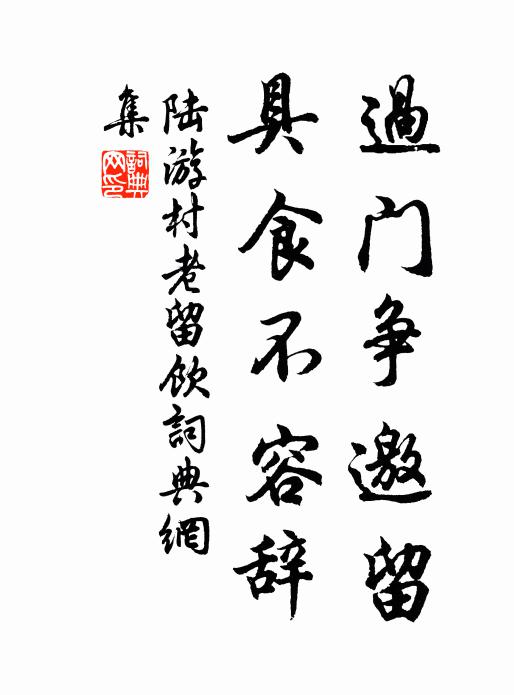 過门争邀留
具食不容辞
陆游村老留飲詞典網
集
詞典
网印